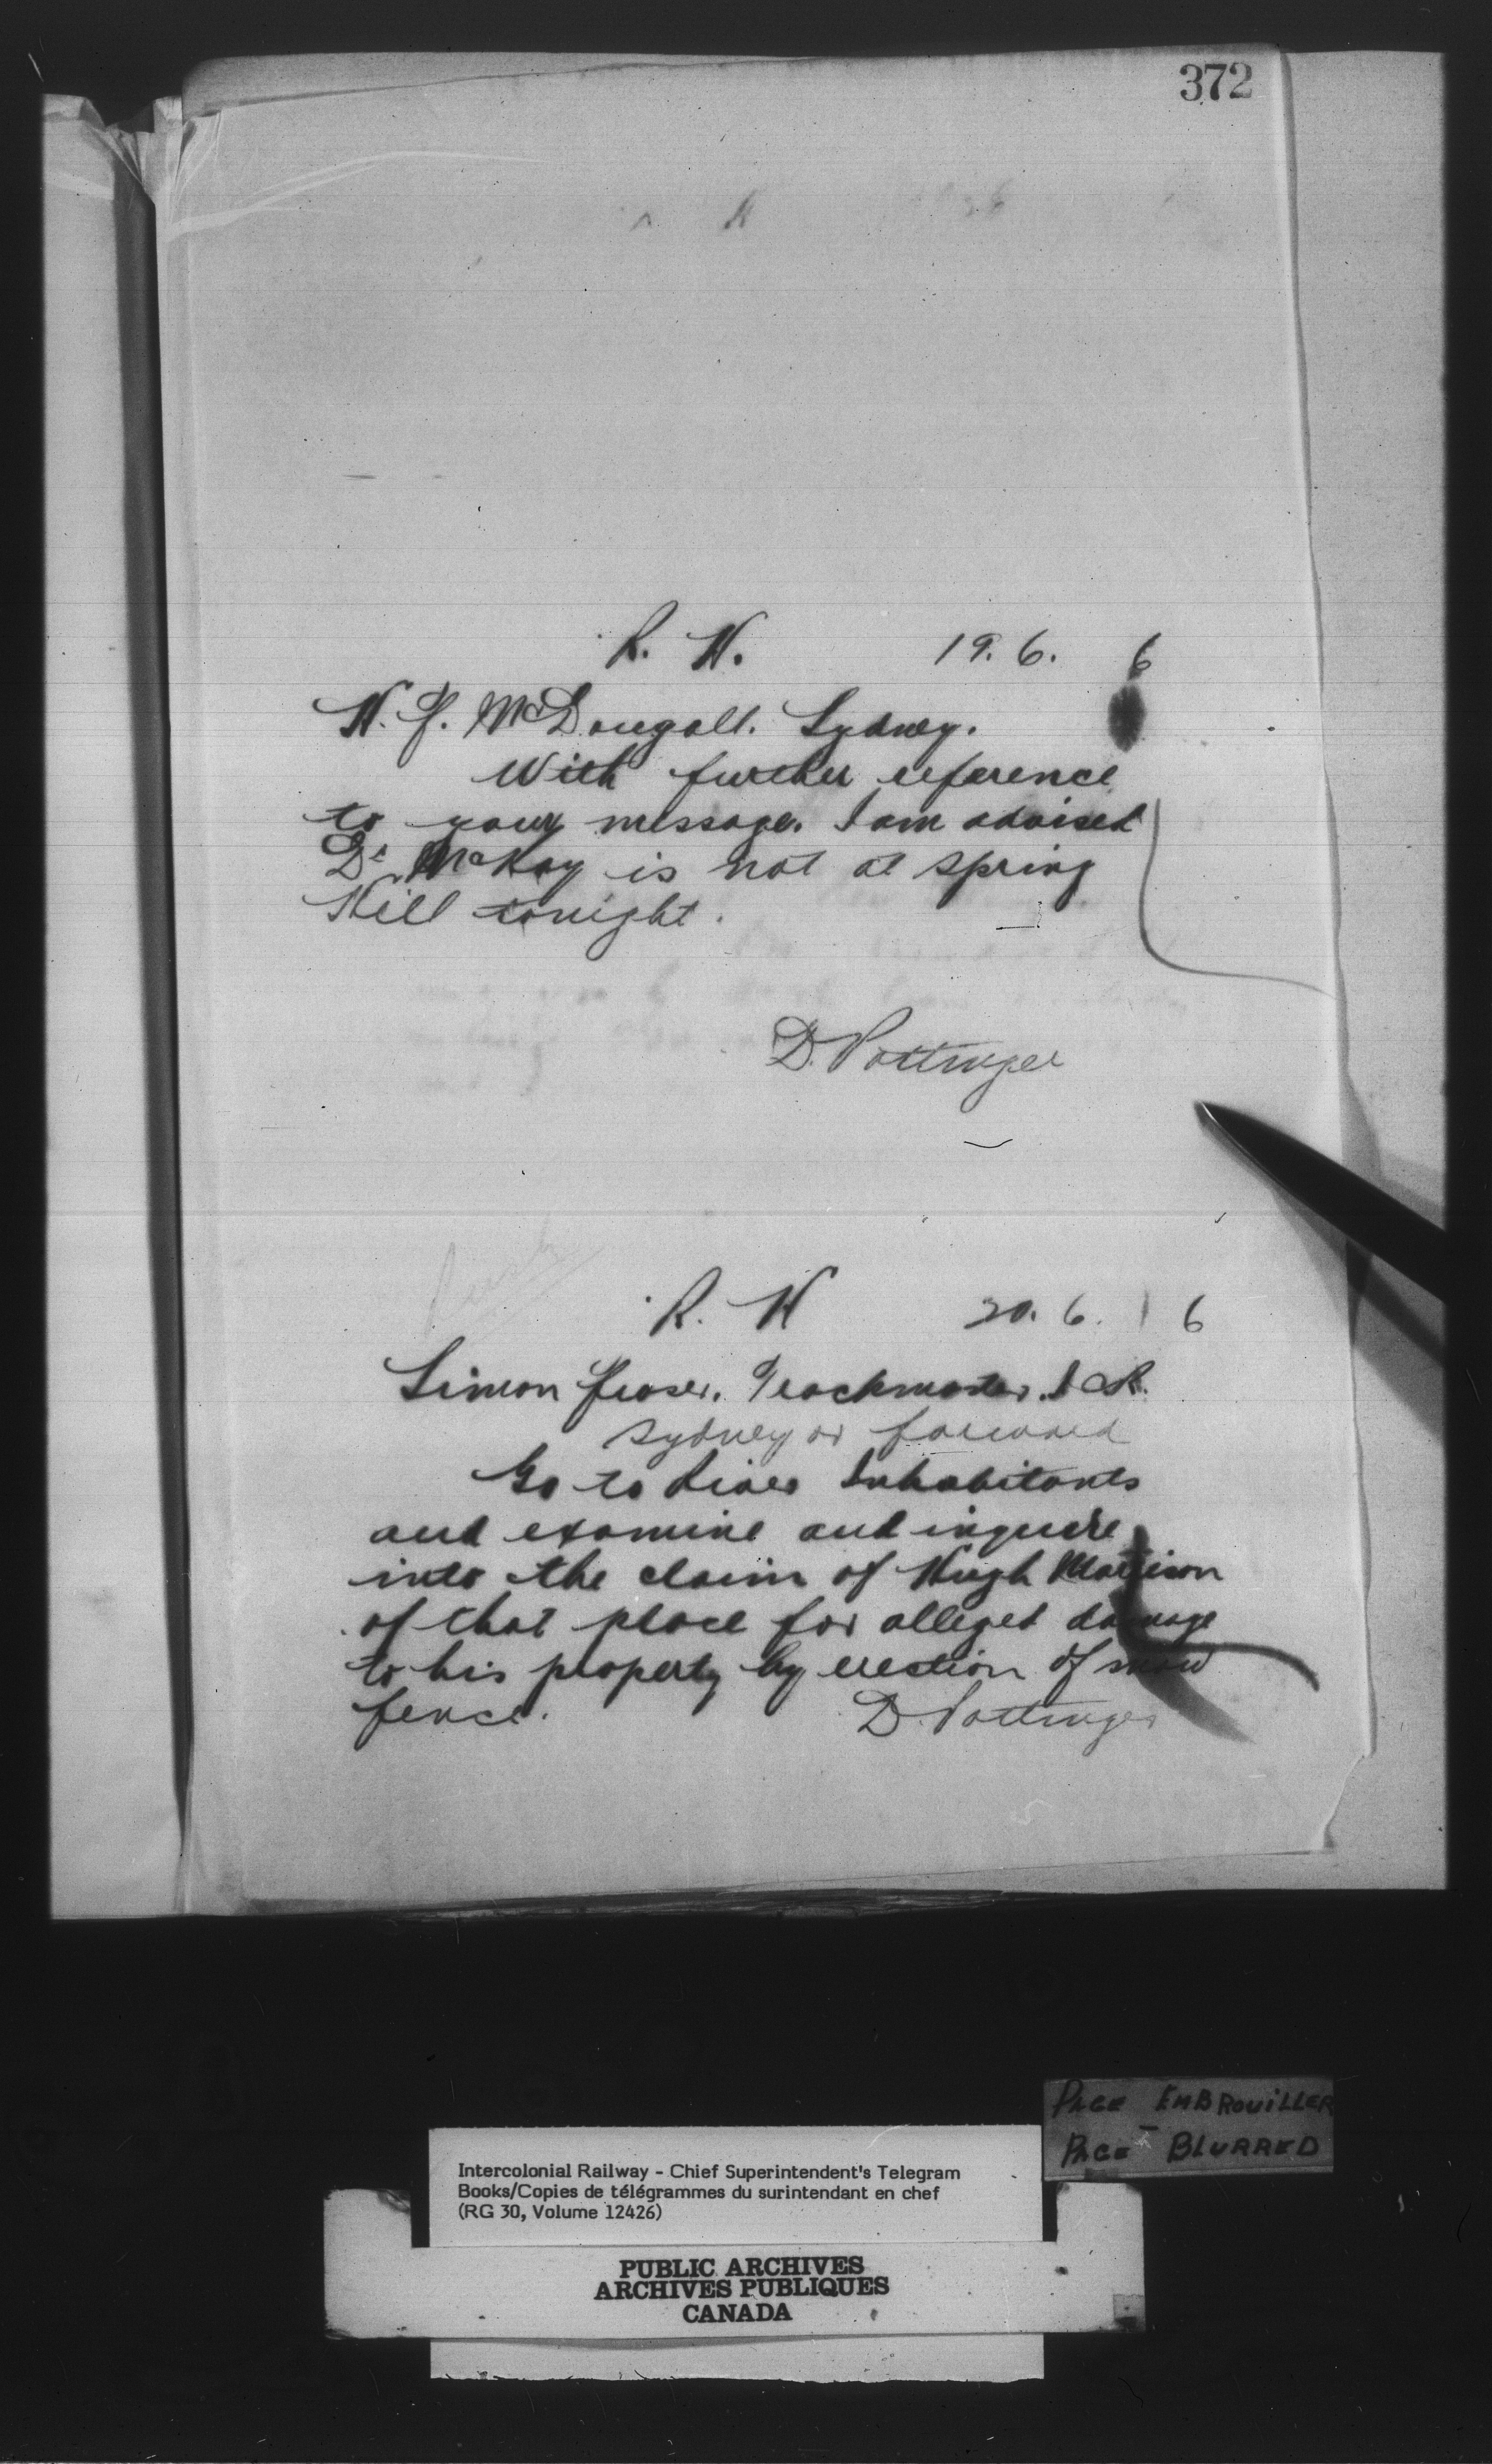 372
R. H. 19. 6. 6
H. F. McDougall. Sydney.
With further reference
to your message. I am advised
Dr McKay is not at Spring
Hill tonight.
D. Pottinger
R. H 20. 6. 6
Simon Fraser. Trackmaster. I C R.
Sydney or forward
Go to River Inhabitants
and examine and inquire
into the claim of Hugh
of that place for alleged damage
to his property by erection of snow
fence. D. Pottinger
PAGE EMBROUILLER
PAGE BLURRED
Intercolonial Railway - Chief Superintendent's Telegram
Books/Copies de télégrammes du surintendant en chef
(RG 30, Volume 12426)
PUBLIC ARCHIVES
ARCHIVES PUBLIQUES
CANADA